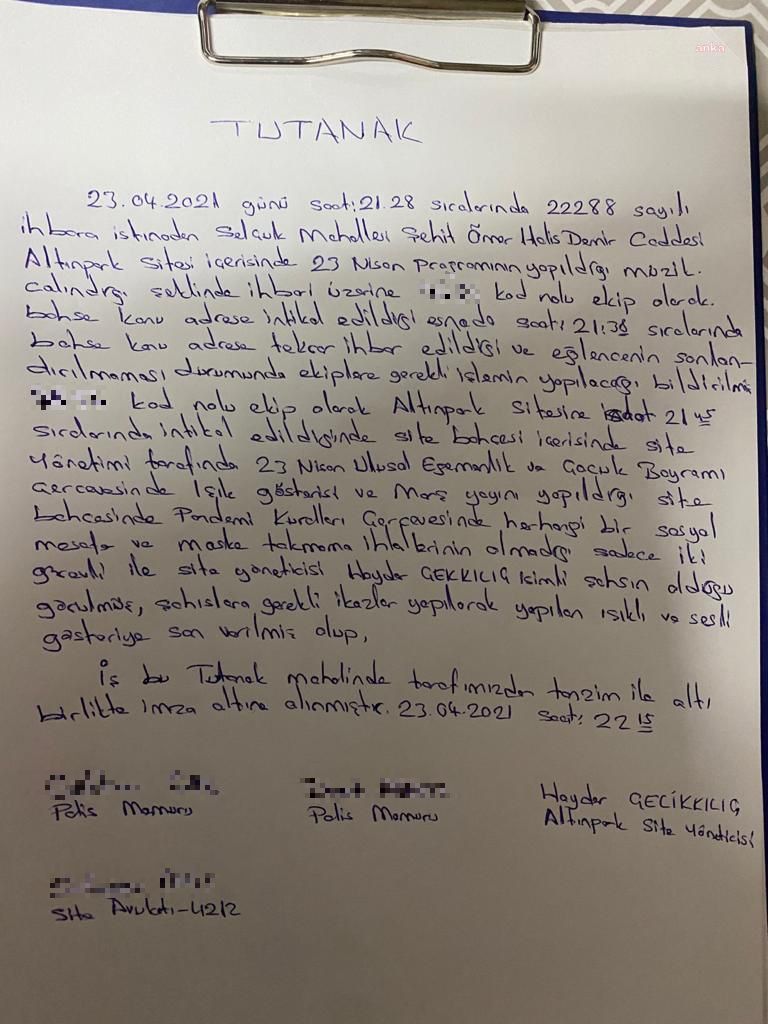 anka
TUTANAK
23.04.2021 günü saat:21.28 sıralarında 22288 sayılı
ihbara istinaden Selçuk Mahallesi Şehit Ömer Halis Demir Caddesi
Altınpark Sitesi içerisinde 23 Nisan programının yapıldığı müzik.
çalındığı şeklinde ihbarı üzerine kod nolu ekip olarak.
bahse konu adrese intikal edildiği esnada saat: 21:36 sıralarında
bahse konu adrese tekrar ihbar edildiği ve eğlencenin sonlan-
dırılmaması durumunda ekiplere gerekli işlemin yapılacağı bildirilmiş
kod nolu ekip olarak Altınpark Sitesine saat 21 45
sıralarında intikal edildiğinde site bahçesi içerisinde site
Yönetimi tarafında 23 Nisan Ulusal Egemenlik ve Çocuk Bayramı
Çerçevesinde Işık gösterisi ve Marş yayını yapıldığı site
bahçesinde Pandemi Kuralları Çerçevesinde herhangi bir sosyal
mesafe ve maske takmama ihlallerinin olmadığı sadece iki
görevli ile site yöneticisi Haydar ÇEKKILIÇ isimli şahsın olduğu
görülmüş, şahıslara gerekli ikazlar yapılarak yapılan ışıklı ve sesli
gösteriye son verilmiş olup,
İş bu Tutanak mahalinde tarafımızdan tanzim ile altı
birlikte imza altına alınmıştır. 23.04.2021 Saat: 22 15
Polis Memuru
Polis Memuru
Haydar GECİKKILIÇ
Altınpark Site Yöneticisi
Site Avukatı-4212